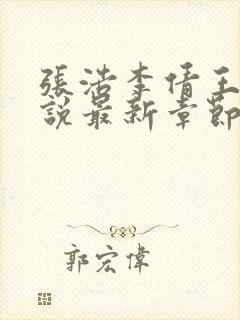 張浩李倩王
說最新章節
郭宏偉